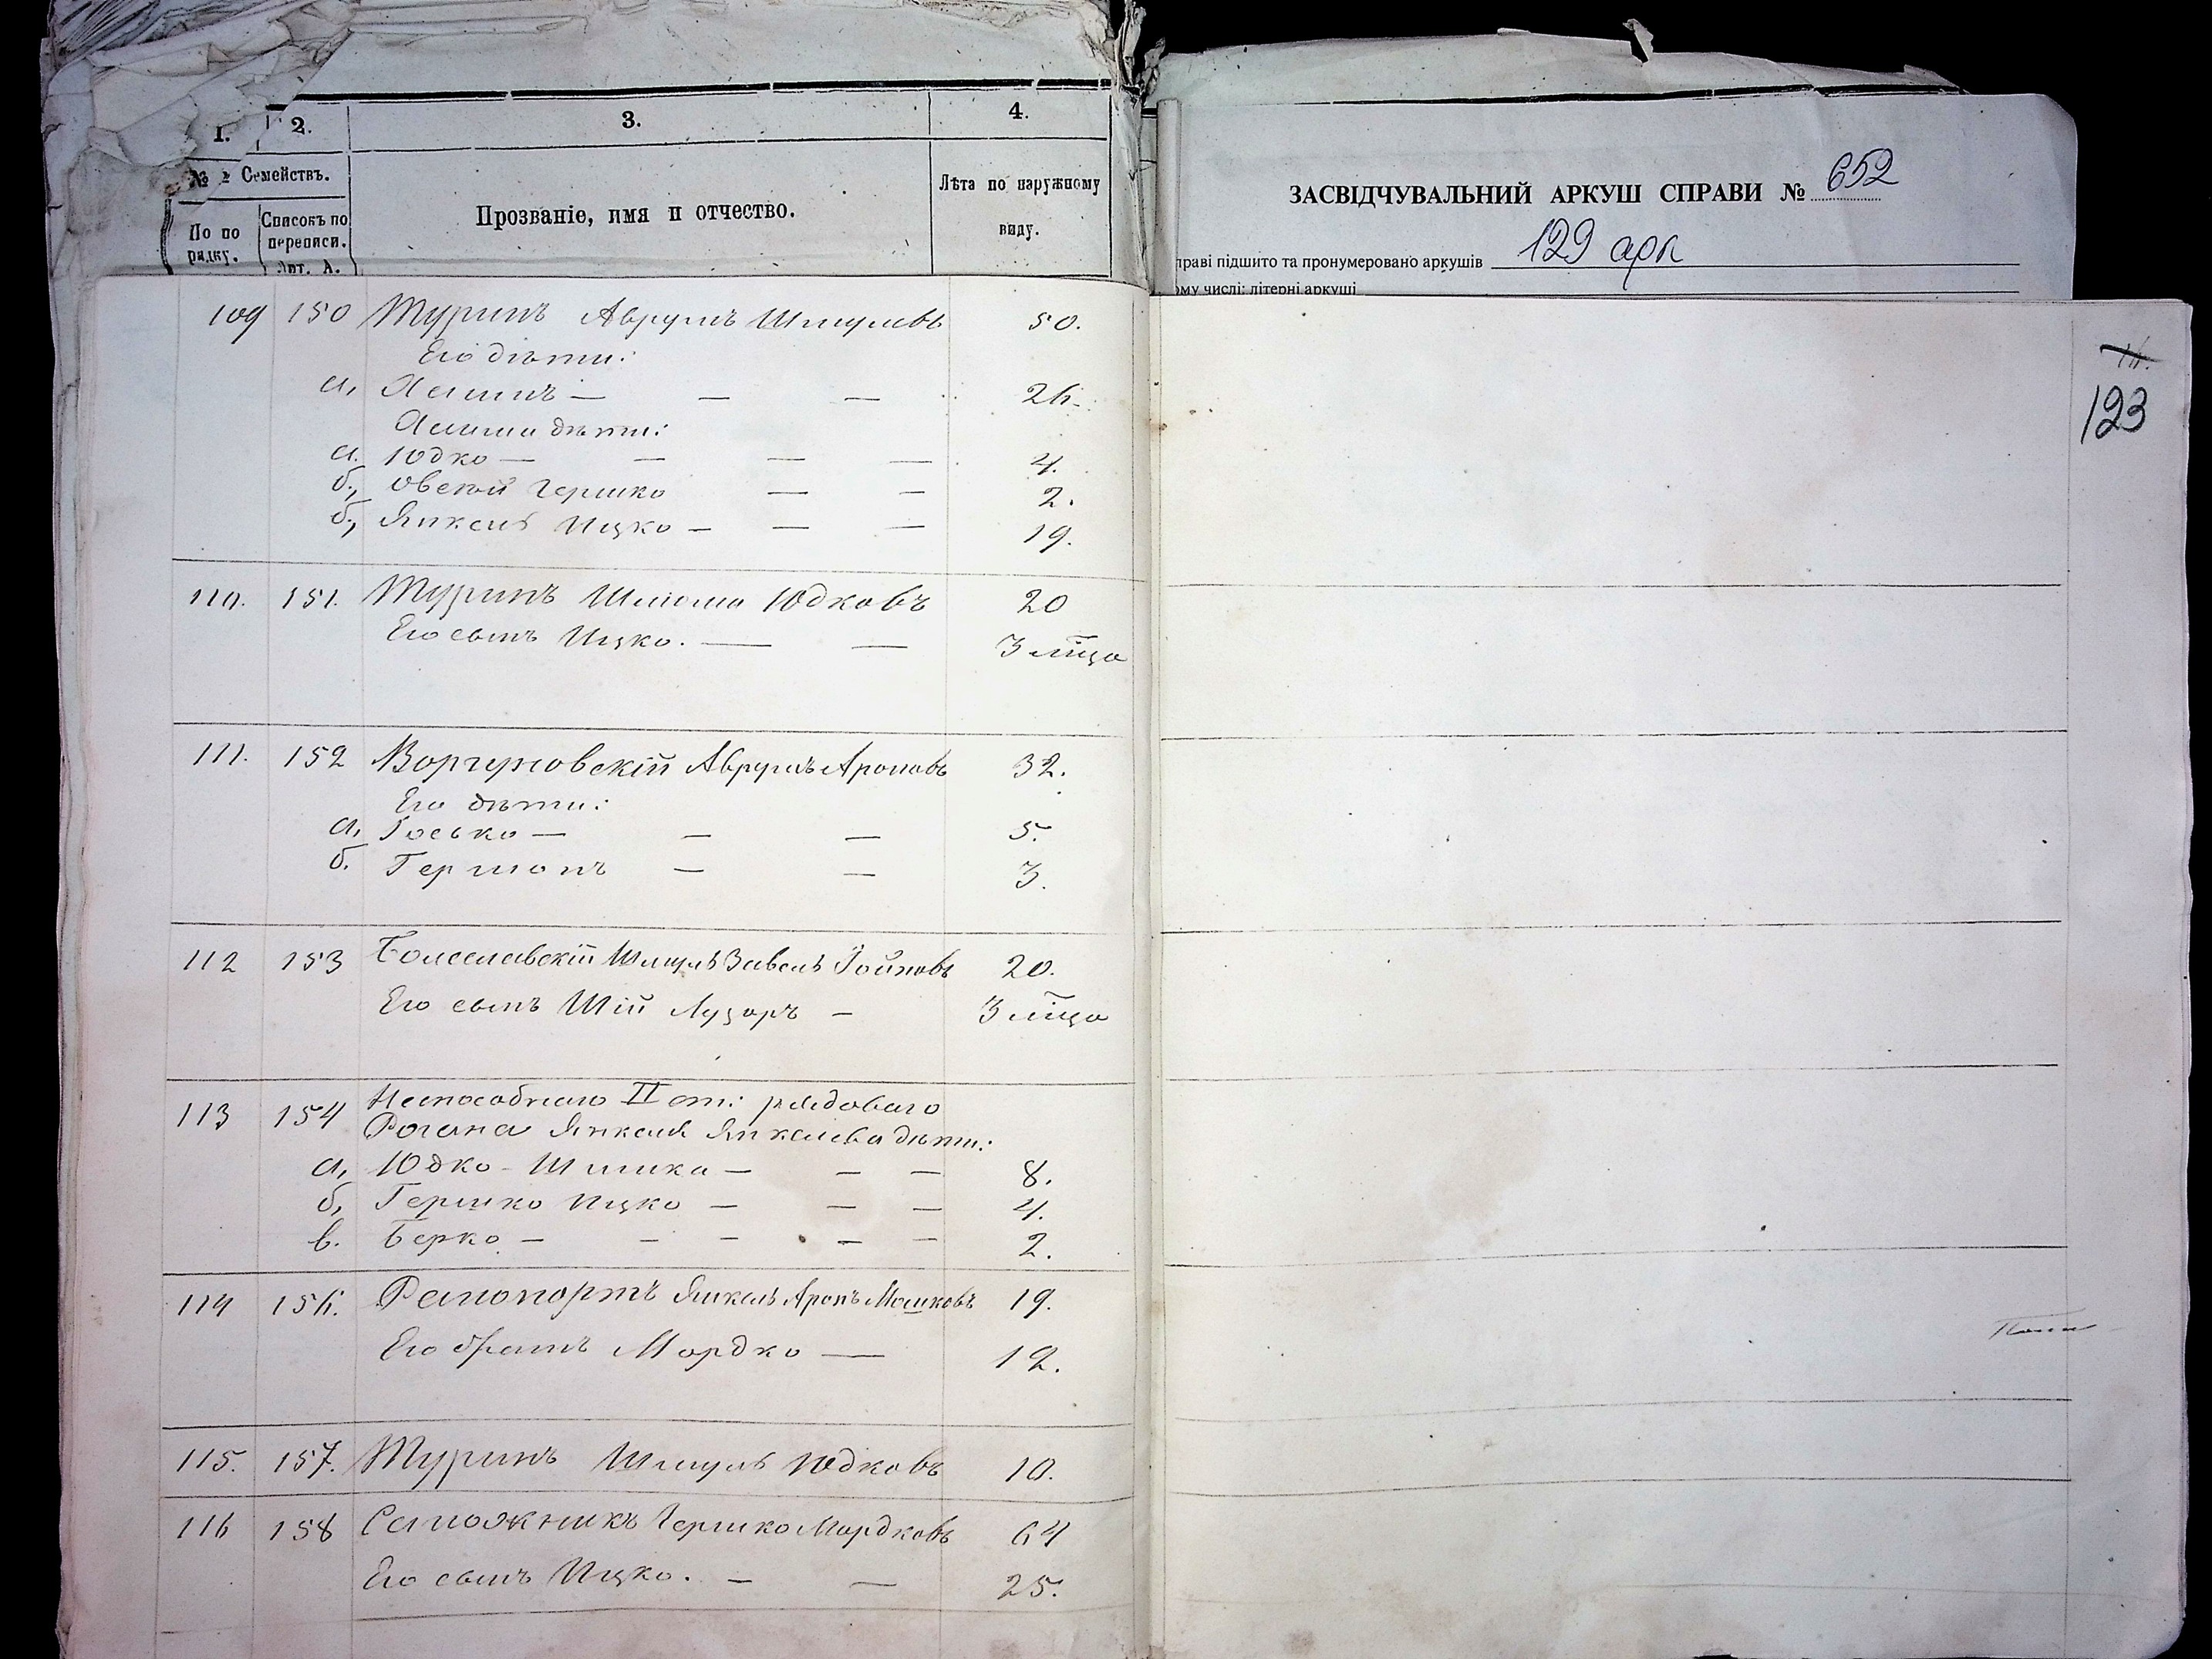 1. 2. 3. 4.
№ Семействъ.
По по рядку.
Списокъ по переписи. Лит. А.
Прозваніе, имя и отчество.
Лѣта по наружному виду.
ЗАСВІДЧУВАЛЬНИЙ АРКУШ СПРАВИ № 652
праві підшито та пронумеровано аркушів 129 арк
ому числі: літерні аркуші
123
109 150 Туринъ Аврумъ Шмулевъ 50.
Его дѣти:
а, — — — 26.
дѣти:
а. Юдко — — — — 4.
б, Овсей Гершко — — 2.
б, Янкель Ицко — — — 19.
110. 151. Туринъ Шлiома Юдковъ 20
Его сынъ Ицко. — — 3 м̃ца
111. 152 Аврумъ Ароновъ 32.
Его дѣти:
а, Іосько — — — 5.
б. Гершонъ — — 3.
112 153 Шмуль Завель Іойновъ 20.
Его сынъ Шій Лузоръ — 3 м̃ца
113 154 Неспособнаго II от: рядоваго
Рогана Янкеля Янкелева дѣти:
а, Юдко - Шимха — — — 8.
б, Гершко Ицко — — — 4.
в. Берко — — — — — 2.
114 156. Рапопортъ Янкель Аронъ Мошковъ 19.
Его братъ Мордко — 12.
115. 157. Туринъ Шмуль Юдковъ 10.
116 158 Сапожникъ Гершко Мордковъ 64
Его сынъ Ицко. — — 25.